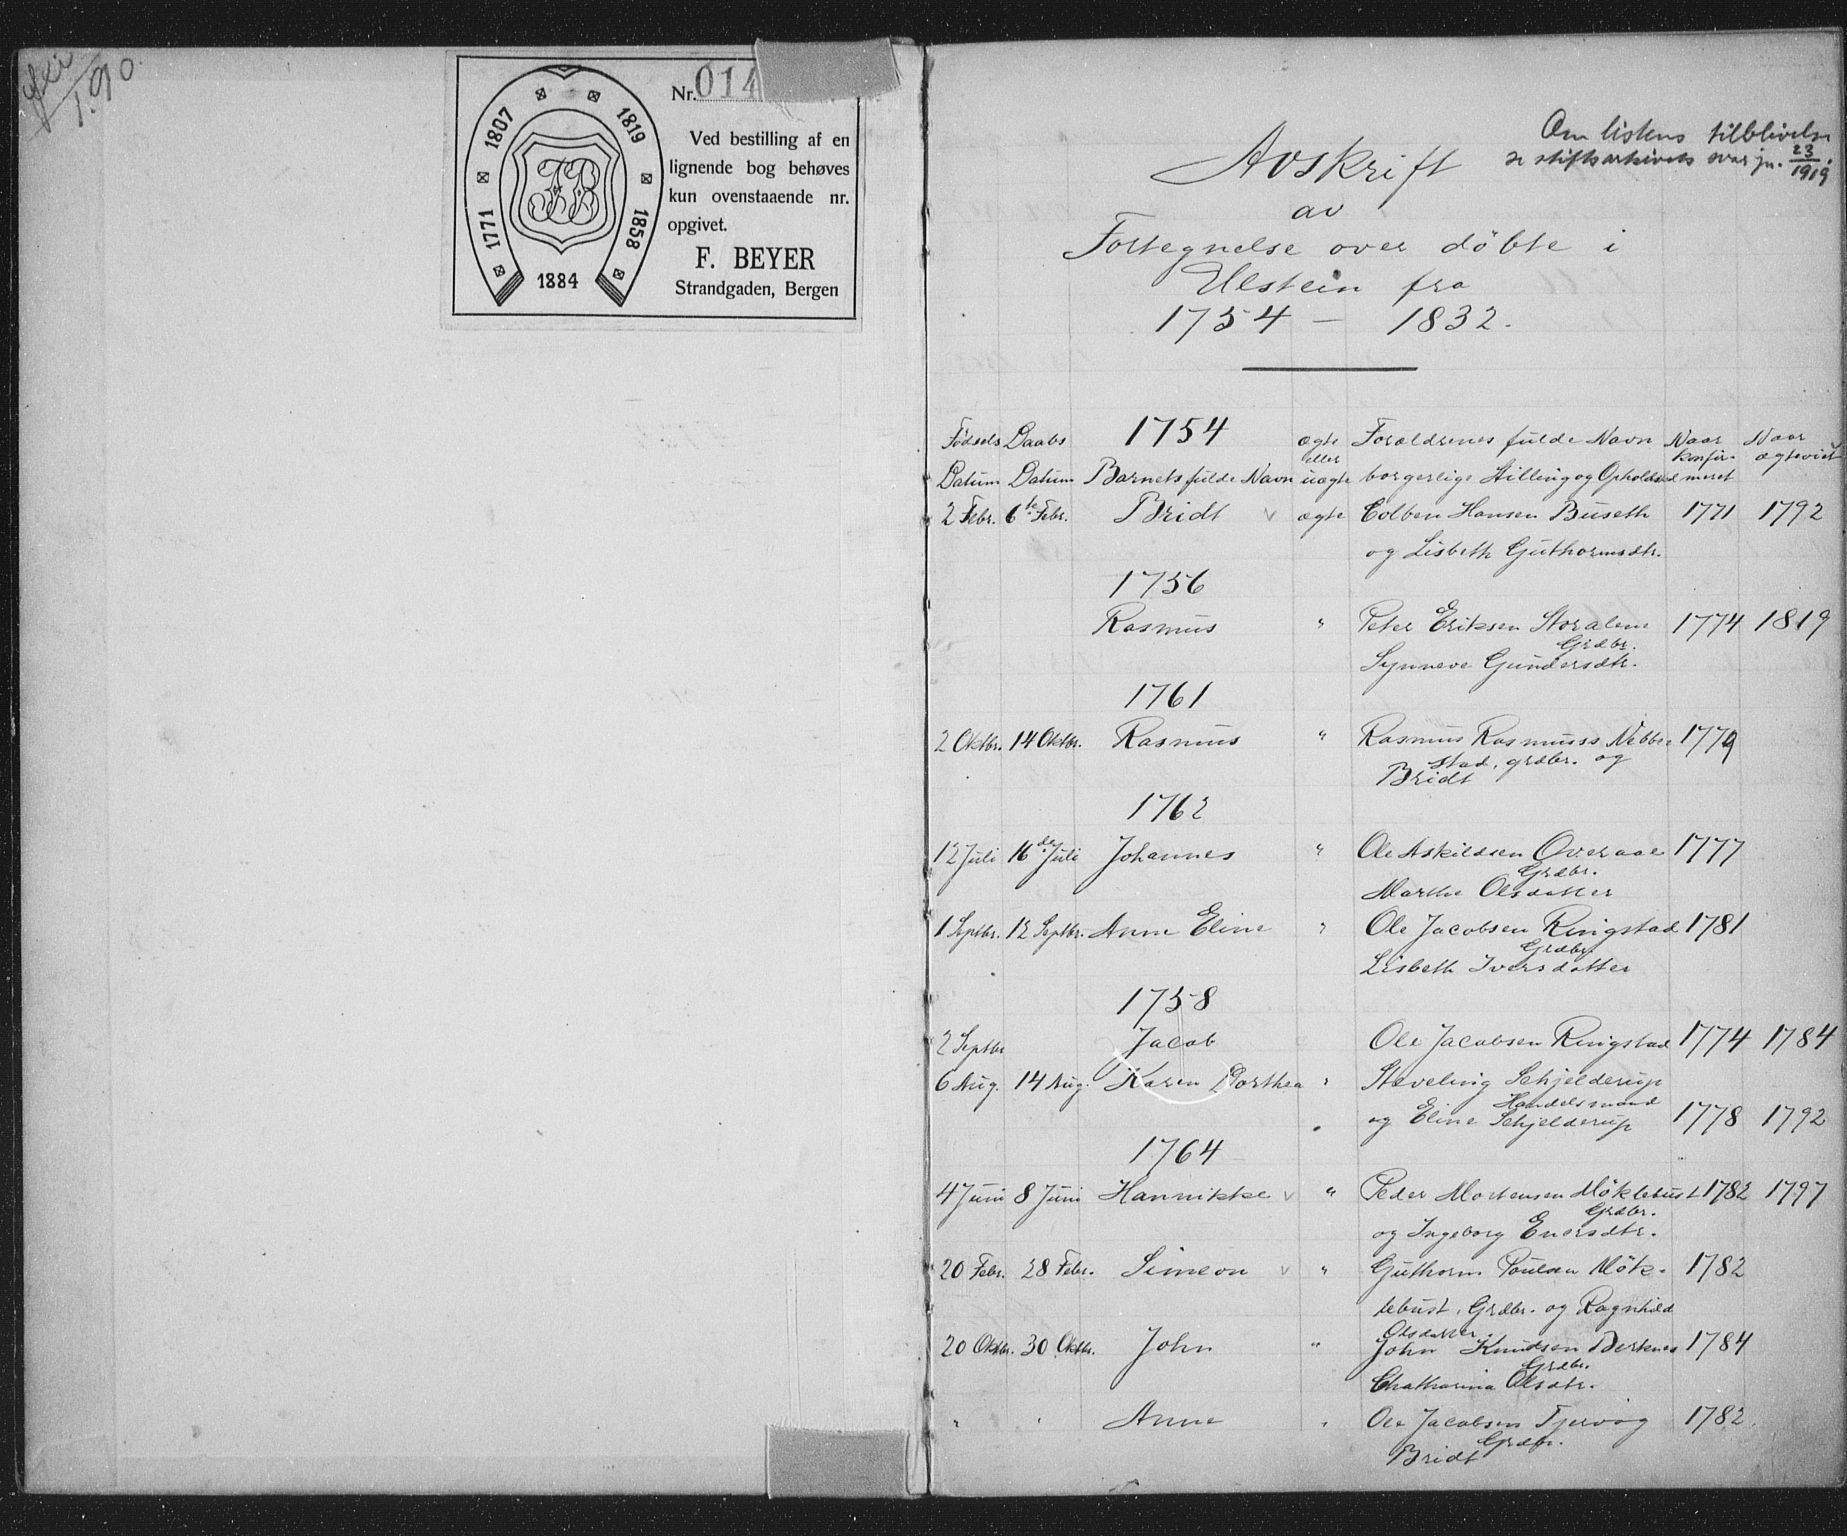 1.90.
Nr. 014
Ved bestilling af en
lignende bog behøves
kun ovenstaaende nr.
opgivet.
F. BEYER
Strandgaden, Bergen
1771 1807 1819 1858
1884
FB
Om listens tilblivelse
se stiftsarkivets svar jn. 23/1919.
Avskrift
av
Fortegnelse over døbte i
Ulstein fra
1754 – 1832.
1754
Fødsels Daabs ægte Forældrenes fulde Navn Naar Naar
eller konfir- ægteviet
Datum Datum Barnets fulde Navn uægte borgerlige Stilling og Opholdssted meret
2 Febr. 6te Febr. Bridt v ægte Colben Hansen Buseth 1771 1792
og Lisbeth Guthormsdtr.
1756
Rasmus " Peter Eriksen Storalene 1774 1819
Grdbr.
Synneve Gundersdtr.
1761
2 Oktbr. 14 Oktbr. Rasmus " Rasmus Rasmuss Nebbe- 1779
stad, grdbr. og
Bridt
1762
12 Juli 16de Juli Johannes " Ole Askildsen Overaae 1777
Grdbr.
Marthe Olsdatter
1 Septbr. 12 Septbr. Anne Eline " Ole Jacobsen Ringstad 1781
Grdbr.
Lisbeth Iversdatter
1758
2 Septbr Jacob Ole Jacobsen Ringstad 1774 1784
6 Aug. 14 Aug. Karen Dorthea " Staveling Schjelderup
Handelsmand
og Eline Schjelderup 1778 1792
1764
4 Juni 8 Juni Hannikke v " Peder Mortensen Møklebust 1782 1797
Grdbr.
og Ingeborg Enersdtr.
20 Febr. 28 Febr. Simeon v " Guthorm Poulsen Møk- 1782
lebust, Grdbr. og Ragnhild
Olsdatter.
20 Oktbr. 30 Oktbr. John " John Knudsen Berknes 1784
Grdbr.
Chatharina Olsdtr.
" " Anne " Ole Jacobsen Tjervog 1782.
Grdbr.
Bridt